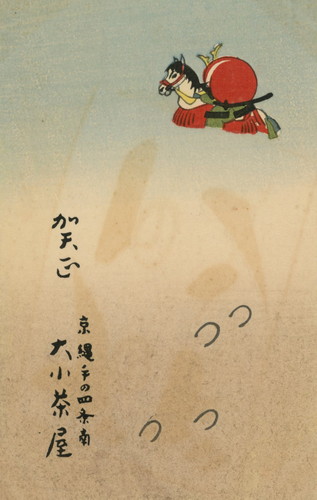 賀正
京縄手の四条南
大小茶屋